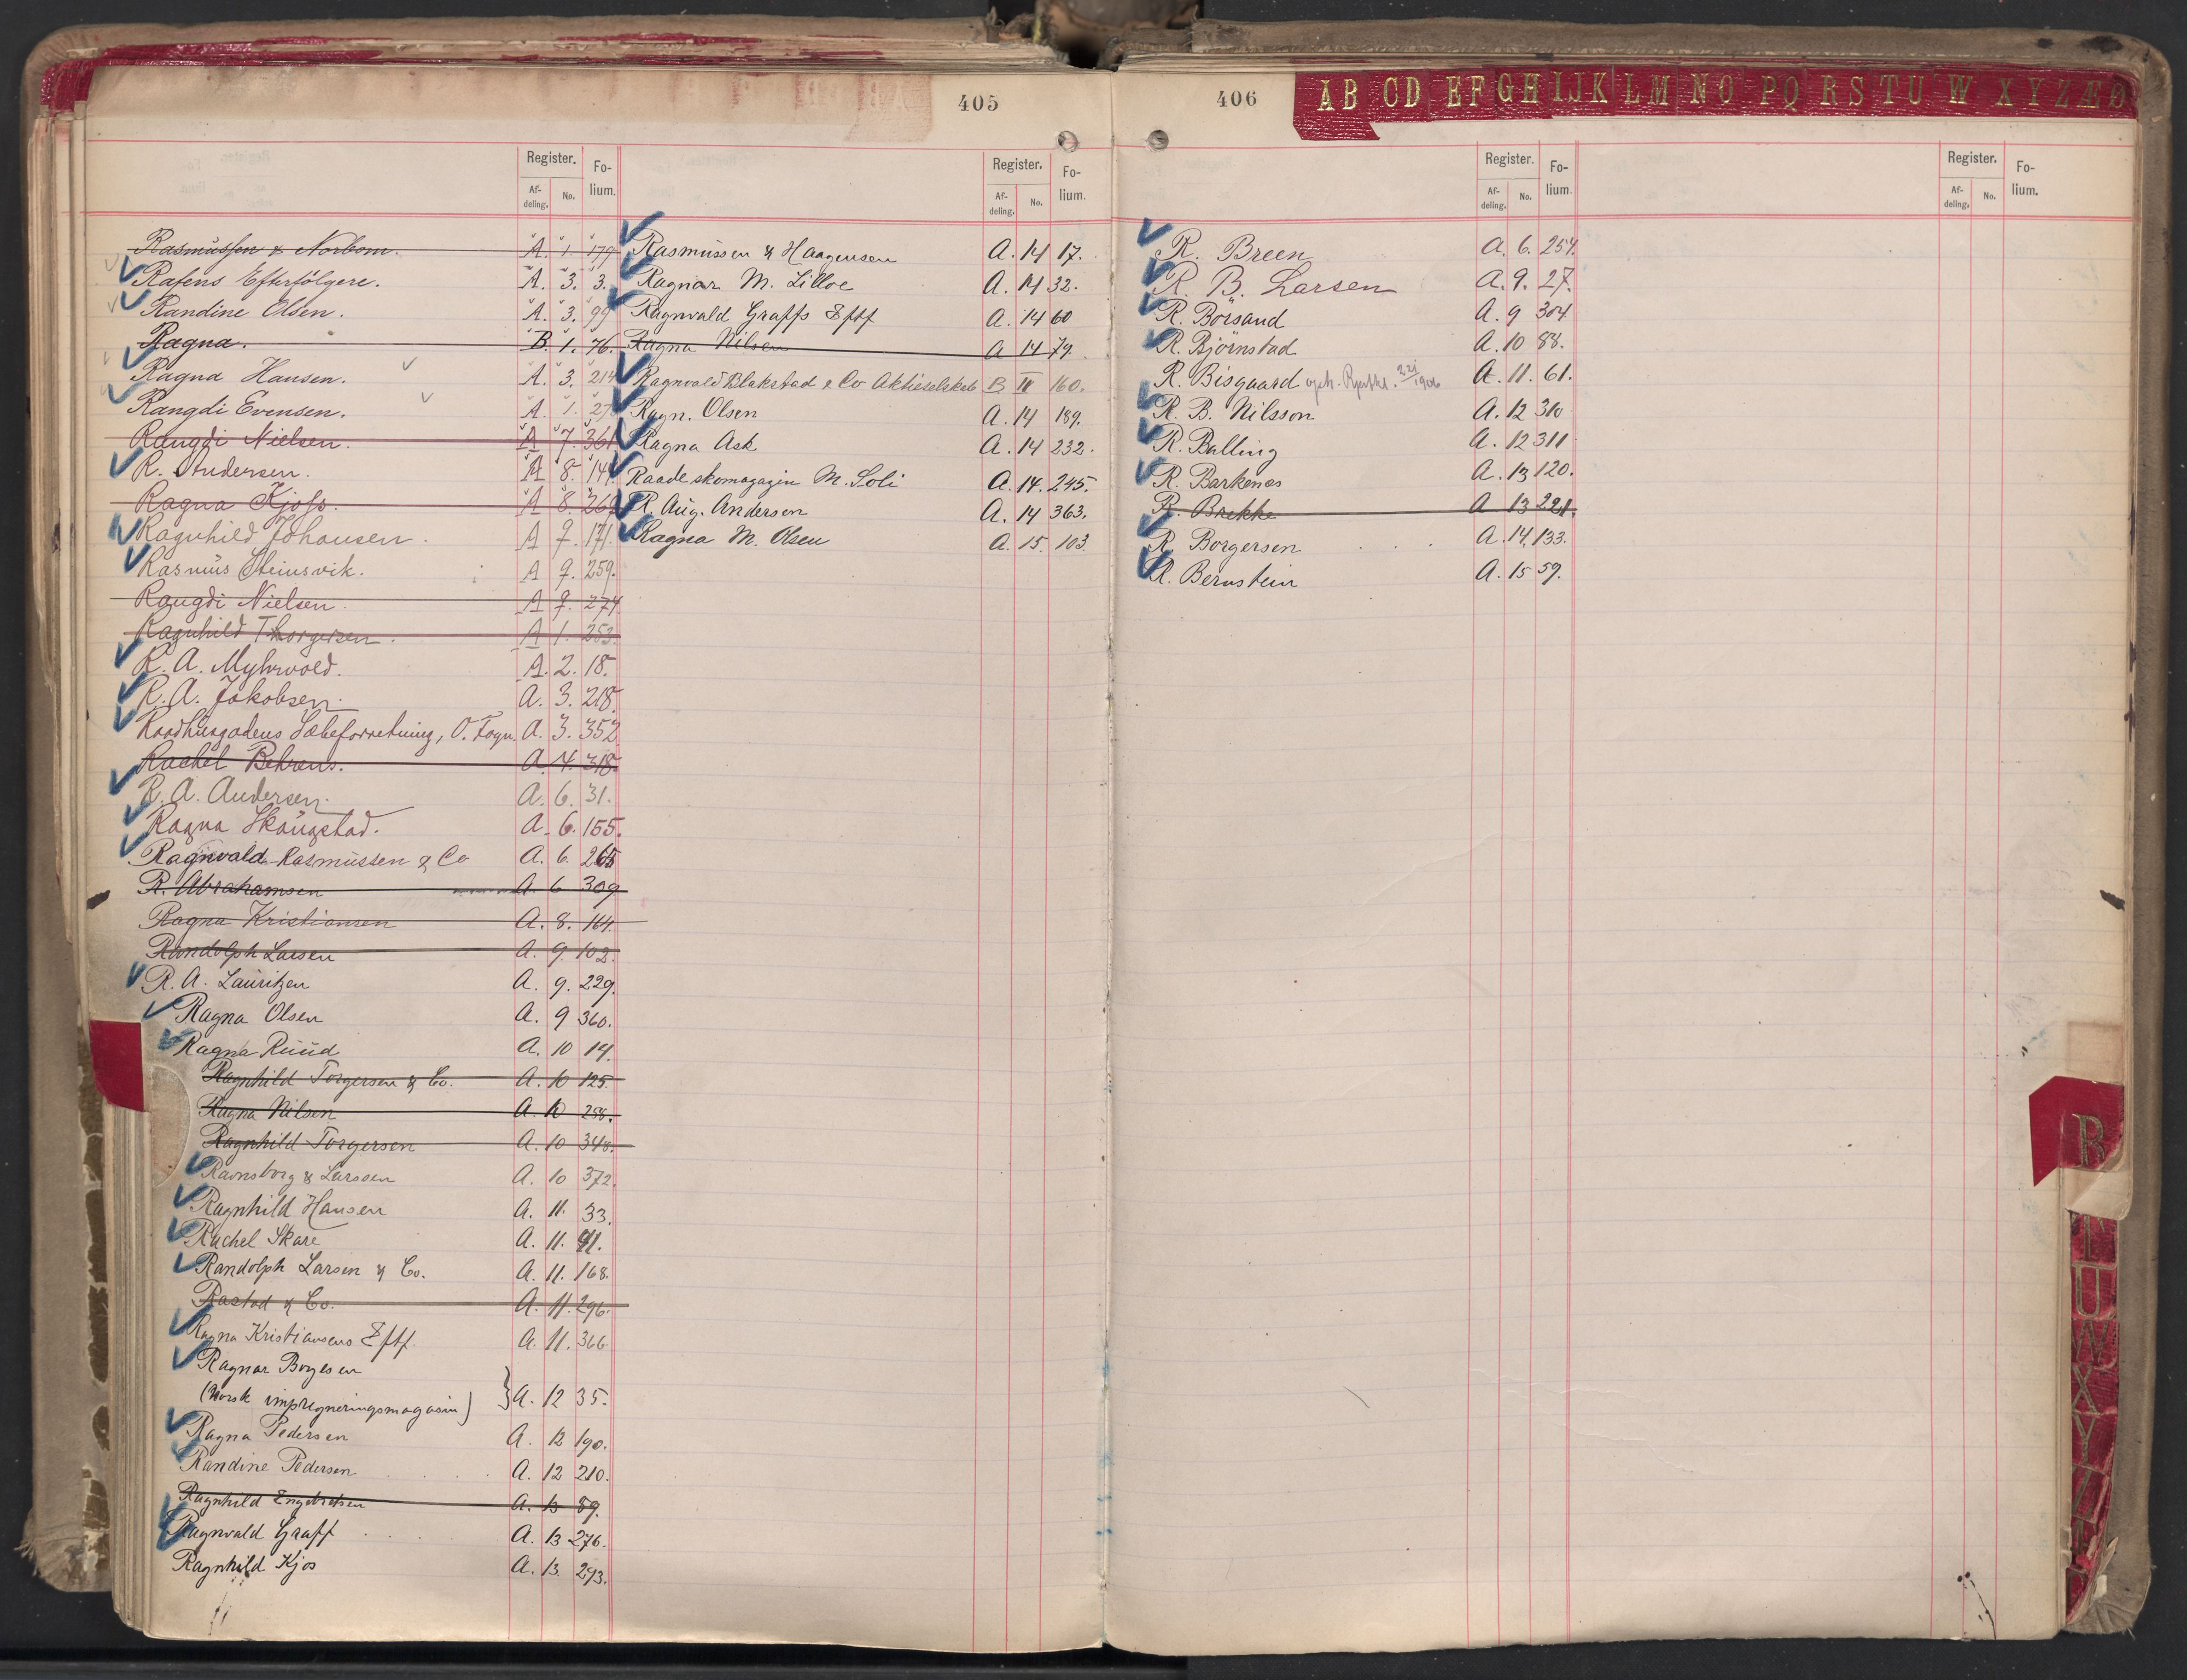 405
Register. Fo-
Af- No. lium.
deling.
Rasmussen & Norbom. A. 1. 179
Rafens Efterfölgere. A. 3. 3.
Randine Olsen. A. 3. 99
Ragna. B. 1. 76.
Ragna Hansen. A. 3. 214
Rangdi Evensen. A. 1.
Rangdi Nielsen. A 7. 361
R. Andersen. A 8. 144
Ragna Kjoss. A 8. 269
Ragnhild Johansen. A 9. 171.
Rasmus Steinsvik. A 9. 259.
Rangdi Nielsen. A 9. 274
Ragnhild Thorgersen. A 1. 253.
R. A. Myhrvold. A. 2. 18.
R. A. Jakobsen. A. 3. 218.
Raadhusgadens Sæbeforretning, O. Fogn. A. 3. 352
Rachel Behrens. A. 4. 318.
R. A. Andersen. A. 6. 31.
Ragna Skaugstad. A. 6. 155.
Ragnvald Rasmussen & Co A. 6. 265
R. Abrahamsen A 6 309
Ragna Kristiansen A. 8. 164.
Randolph Larsen A. 9. 102.
R. A. Lauritzen A. 9. 229.
Ragna Olsen A. 9 360.
Ragna Ruud A. 10 14.
Ragnhild Torgersen & Co. A. 10 125.
Ragna Nilsen A. 10 258.
Ragnhild Torgersen A. 10 348.
Ravnsborg & Larssen A. 10 372.
Ragnhild Hansen A. 11. 33.
Rachel Skare A. 11. 91.
Randolph Larsen & Co. A. 11. 168.
Rastad & Co. A. 11. 296.
Ragna Kristiansens Eftf. A. 11. 366.
Ragnar Borgesen
(Norsk impregneringsmagasin) } A. 12 35.
Ragna Pedersen A. 12 190.
Randine Pedersen A. 12 210.
Ragnhild Engebretsen A. 13 89.
Ragnvald Graff A. 13 276.
Ragnhild Kjos A. 13. 293.
Register. Fo-
Af- No. lium.
deling.
Rasmussen & Haagensen A. 14 17.
Ragnar M. Lilloe A. 14 32.
Ragnvald Graffs Eftf A. 14 60
Ragna Nilsen A 14 79.
Ragnvald Blakstad & Co Aktieselskab B II 160.
Ragn. Olsen A. 14 189.
Ragna Ask A. 14 232.
Raade skomagazin M. Soli A. 14. 245.
R. Aug. Andersen A. 14 363.
Ragna M. Olsen A. 15. 103.
406
AB CD EF GH IJ K L M N O P Q R S T U W X Y Z Æ Ø
Register. Fo-
Af- No. lium.
deling.
R. Breen A. 6. 254.
R. B. Larsen A. 9. 27.
R. Börsand A. 9 304
R. Björnstad A. 10 88.
R. Bisgaard 1906 A. 11. 61.
R. B. Nilsson A. 12 310
R. Balling A. 12 311
R. Barkenes A. 13 120.
R. Brekke A 13 221.
R. Borgersen A. 14. 133.
R. Bernstein A. 15 59.
Register. Fo-
Af- No. lium.
deling.
R
U
W
X
Y